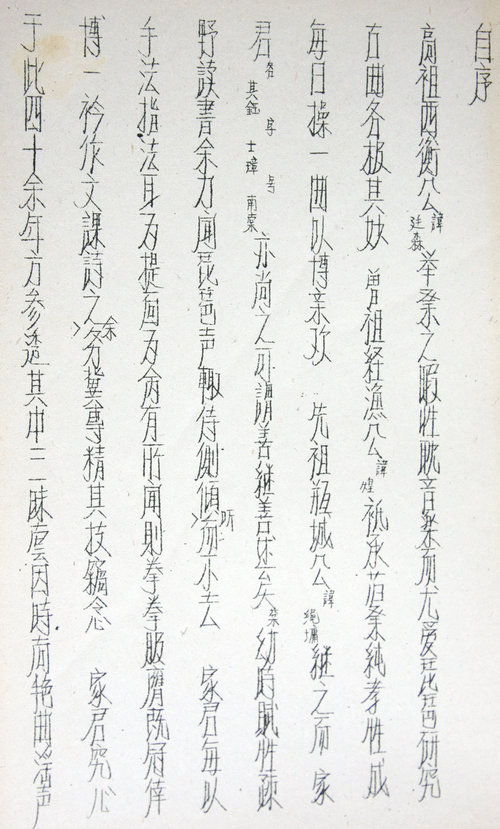 自序
高祖西衡公諱廷森举業之暇性耽音樂而尤爱琵琶研究
古曲各极其妙 曾祖经漁公諱煌祗承旧業純孝性成
每日操一曲以博亲欢 先祖瓶城公諱绳墉继之而 家
君名其鈺字士璋号南棠亦尚之可謂善継善述矣幼時賦性疎
野读書余力闻琵琶声輒侍側傾听而不去 家君每以
手法指法耳为提面为命有所闻則拳拳服膺既冠倖
博一衿作文課詩之余务冀專精其技竊念 家君究心
于此四十余年方参透其中三昧虚因時尚艳曲淫声